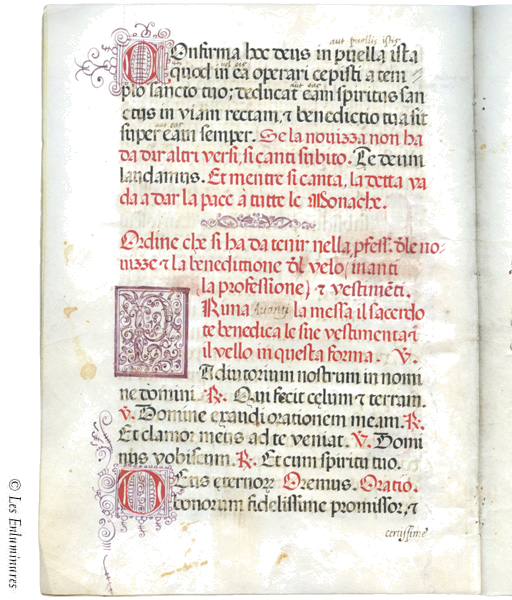 aut puellis istis
COnfirma hoc deus in puella ista
vel eis
quod in ea operari cepisti a tem=
aut eas
plo sancto tuo; te ducat eam spiritus san
ctus in viam rectam, & benedictio tua sit
aut eas
super eam semper. Se la novizza non ha
da dir altri versi, si canti subito. Te deum
laudamus. Et mentre si canta, la detta va
da a dar la pace à tutte le Monache.
Ordine che si ha da tenir nella profess. dle no-
vizze & la benedittione dl velo (inanti
la professione) & vestimēti.
PRima avanti la messa il sacerdo
te benedica le sue vestimenta &
il vello in questa forma. V.
Adiutorium nostrum in nomi
ne domini. R. Qui fecit cęlum & terram.
V. Domine exaudi orationem meam. R.
Et clamor meus ad te veniat. V. Domi
nus vobiscum. R. Et cum spiritu tuo.
DEus ęternorum Oremus. Oratio.
bonorum fidelissime promissor, &
certissime
© Les Enluminures